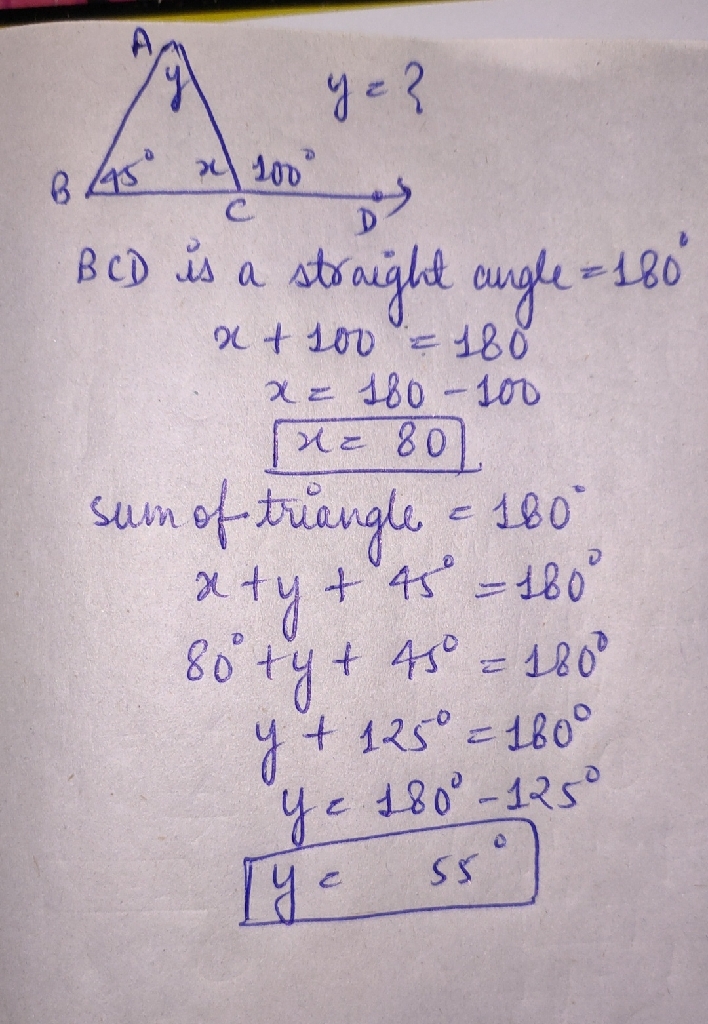 A
y y = ?
B 45° x 100°
C D
BCD is a straight angle = 180°
x + 100° = 180
x = 180 - 100
x = 80
sum of triangle = 180°
x + y + 45° = 180°
80° + y + 45° = 180°
y + 125° = 180°
y = 180° - 125°
y = 55°